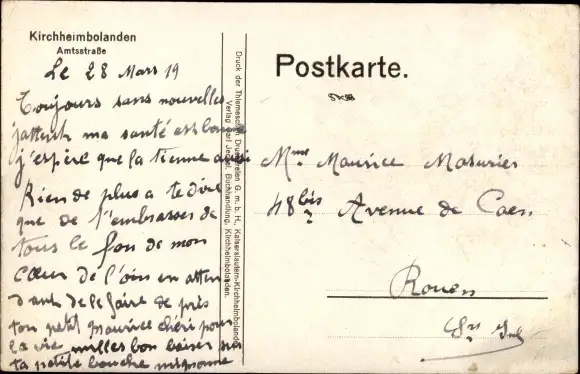 Kirchheimbolanden
Amtsstraße
Le 28 Mars 19
Toujours sans nouvelles
j'attend ma santé est bonne
j'espère que la tienne aussi
Rien de plus a te dire
que de t'embrasser de
tous le fon de mon
cœur de loin en atten
dant de le faire de près
ton petit Maurice chéri pour
la vie milles bon baiser sur
ta petite bouche mignonne
Druck der Thiemeschen Druckereien G. m. b. H., Kaiserslautern-Kirchheimbolanden
Verlag Buchhandlung, Kirchheimbolanden.
Postkarte.
Mme Maurice
48 bis Avenue de Caen
Rouen
Sr Inf